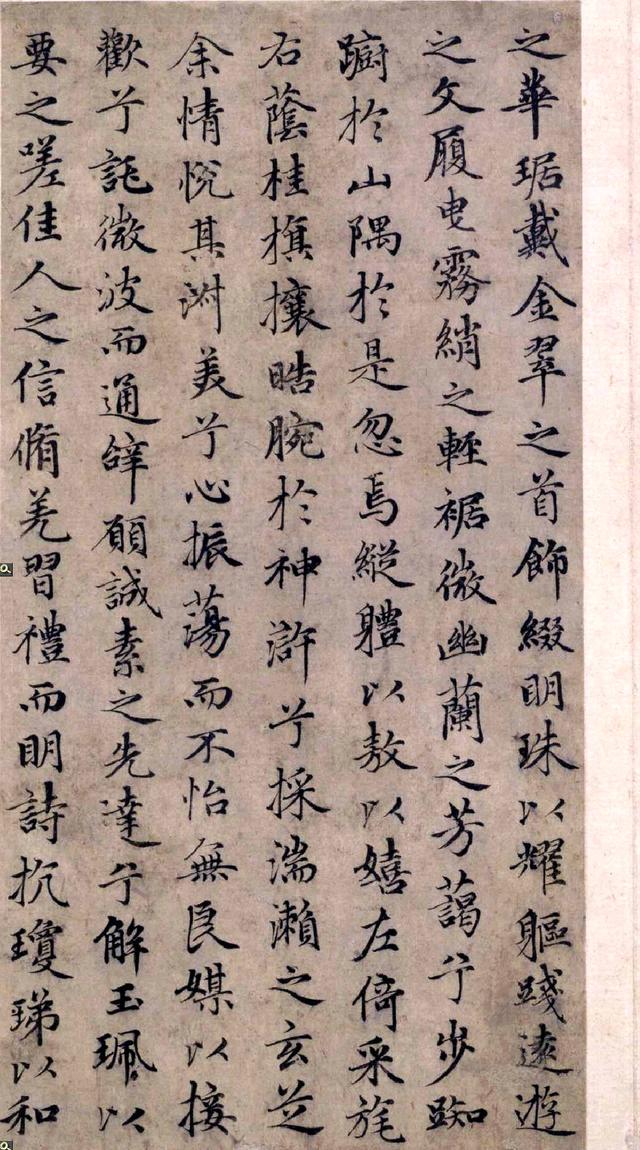 之華琚戴金翠之首飾綴明珠以耀軀踐遠遊
之文履曳霧綃之輕裾微幽蘭之芳藹兮步踟
蹰於山隅於是忽焉縱軆以敖以嬉左倚采旄
右蔭桂旗攘晧腕於神滸兮採湍瀨之玄芝
余情悅其淑美兮心振蕩而不怡無良媒以接
歡兮託微波而通辭願誠素之先達兮解玉珮以
要之嗟佳人之信脩羌習禮而明詩抗瓊珶以和